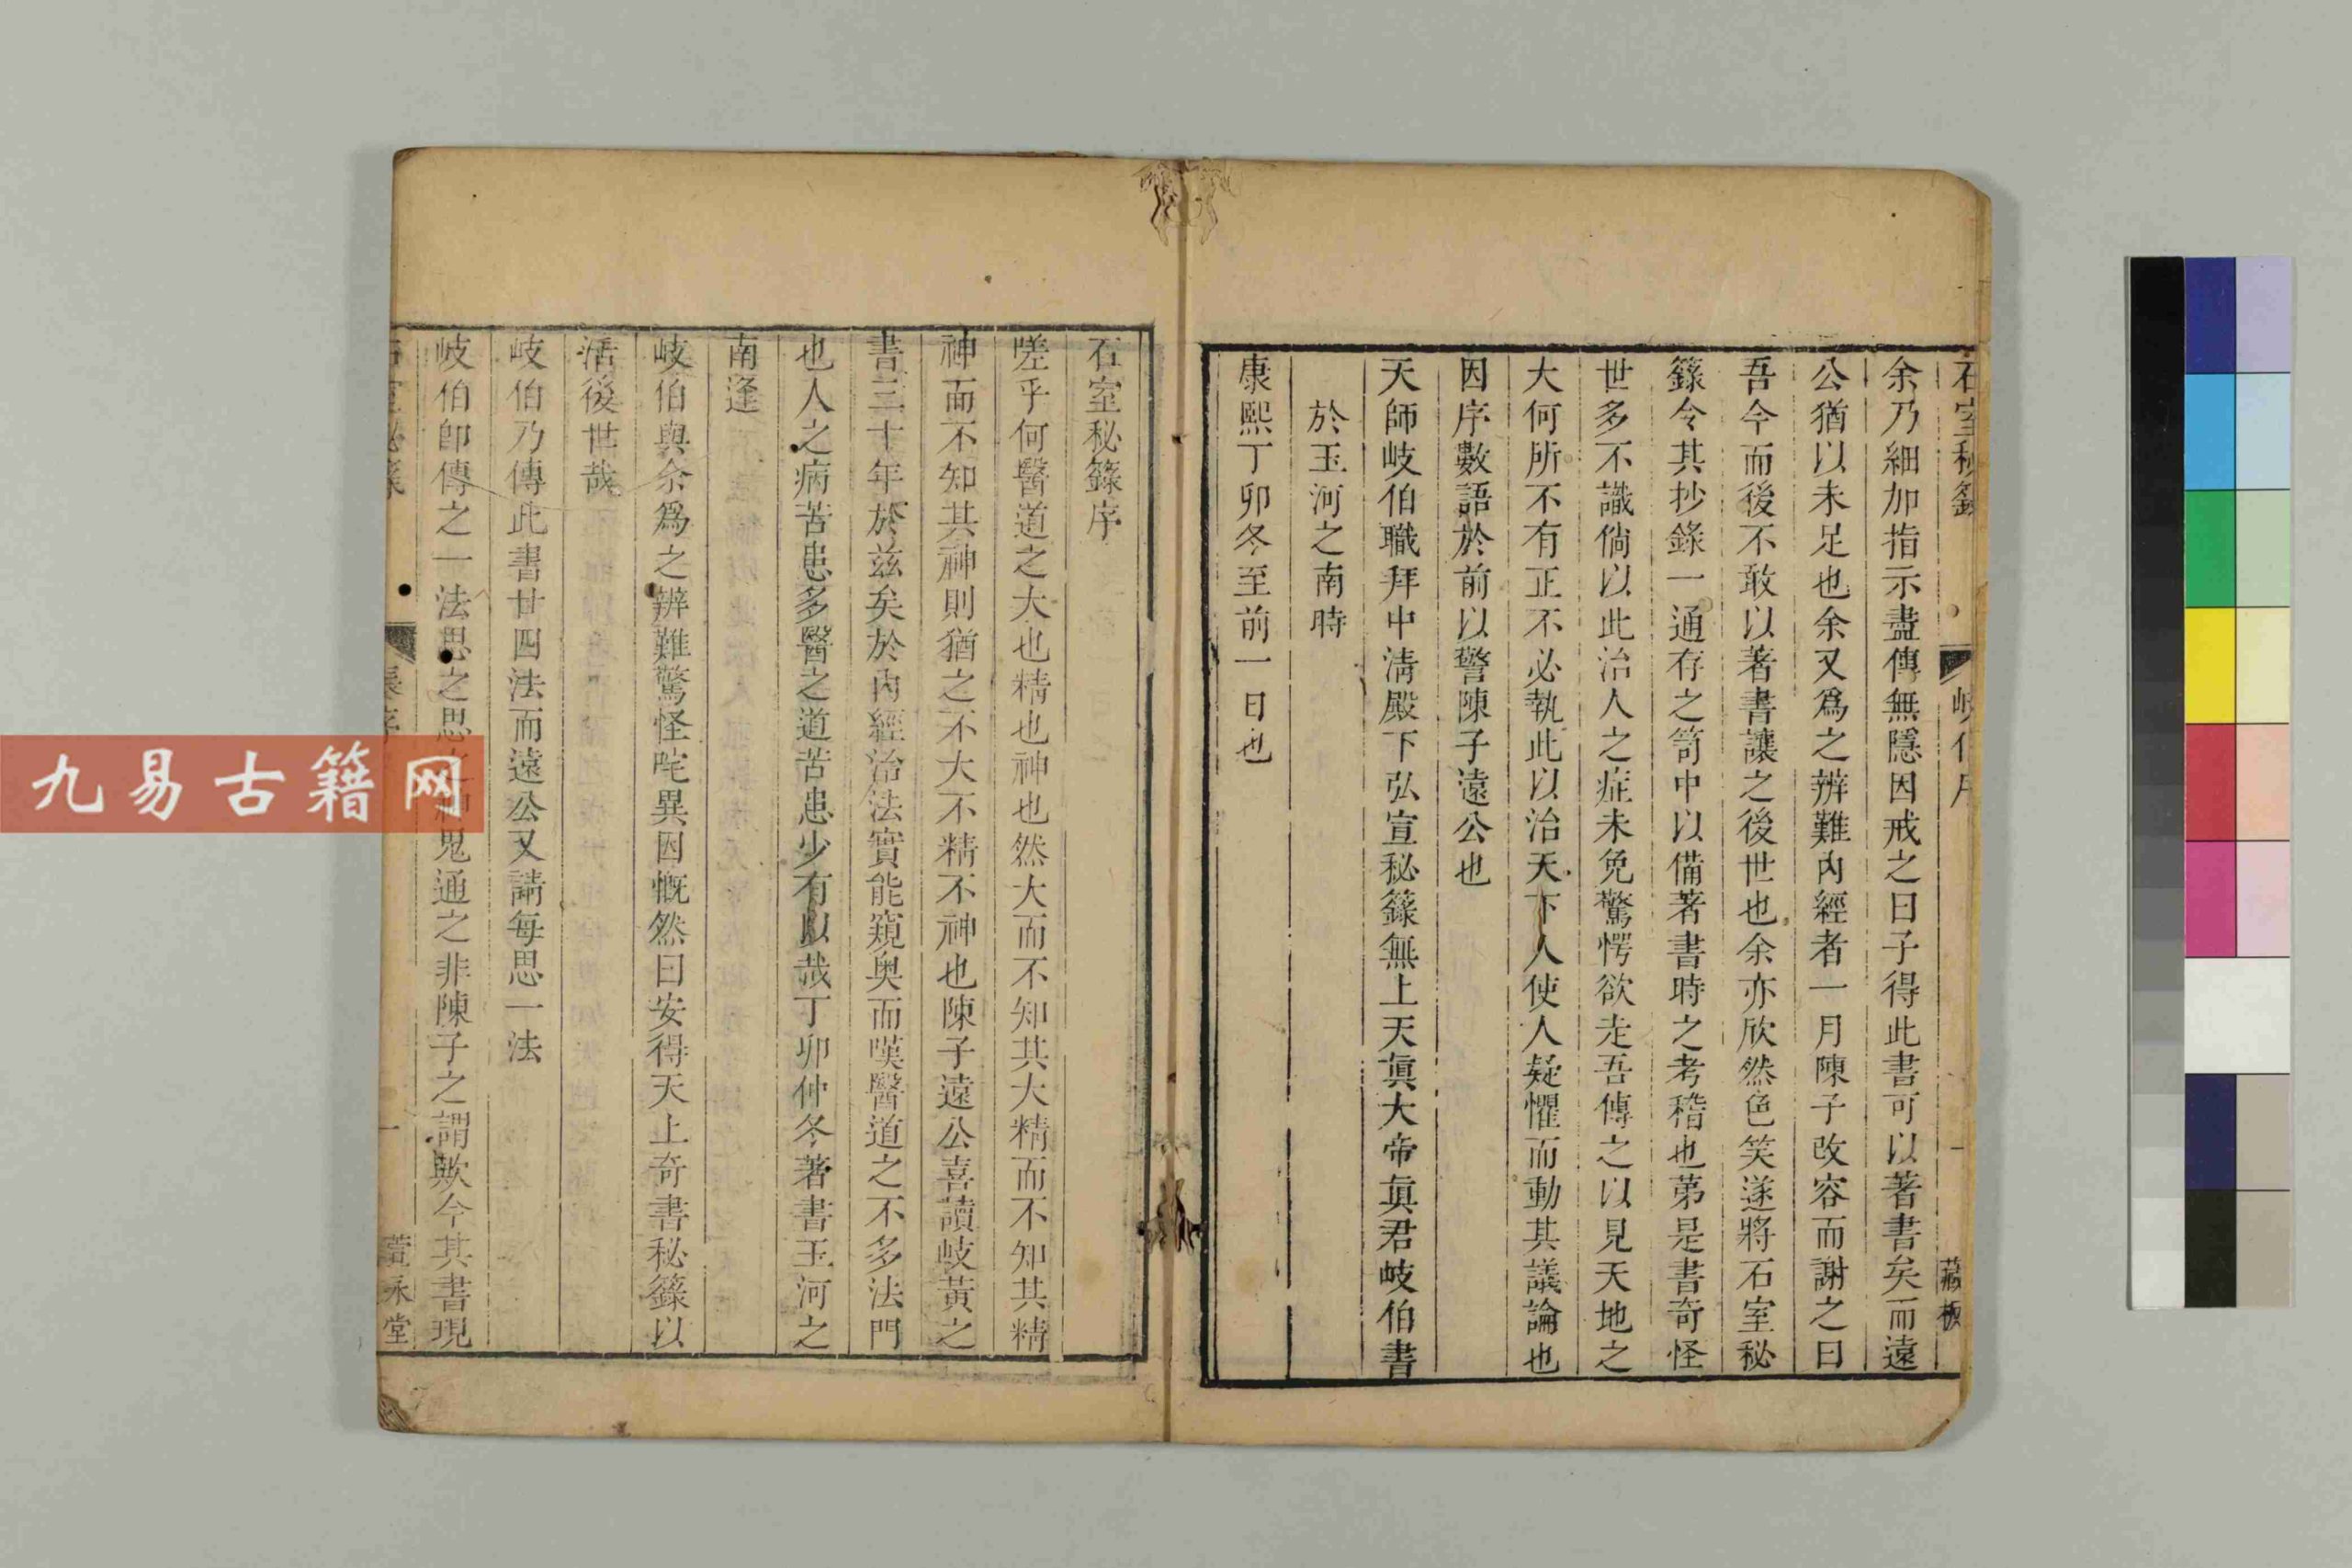 石室秘籙
岐伯序
一
藏板
余乃細加指示盡傳無隱因戒之曰子得此書可以著書矣而遠
公猶以未足也余又爲之辨難內經者一月陳子改容而謝之曰
吾今而後不敢以著書讓之後世也余亦欣然色笑遂將石室秘
籙令其抄錄一通存之笥中以備著書時之考稽也第是書奇怪
世多不識倘以此治人之症未免驚愕欲走吾傳之以見天地之
大何所不有正不必執此以治天下人使人疑懼而動其議論也
因序數語於前以警陳子遠公也
天師岐伯職拜中清殿下弘宣秘籙無上天眞大帝眞君岐伯書
於玉河之南時
康熙丁卯冬至前一日也
石室秘籙序
嗟乎何醫道之大也精也神也然大而不知其大精而不知其精
神而不知其神則猶之不大不精不神也陳子遠公喜讀岐黃之
書三十年於兹矣於內經治法實能窺奥而嘆醫道之不多法門
也人之病苦患多醫之道苦患少有以哉丁卯仲冬著書玉河之
南逢
岐伯與余爲之辨難驚怪咤異因慨然曰安得天上奇書秘籙以
活後世哉
岐伯乃傳此書廿四法而遠公又請每思一法
岐伯卽傳之一法思之思之神鬼通之非陳子之謂歟今其書現
石室秘籙
張序
一
萱永堂
九易古籍网